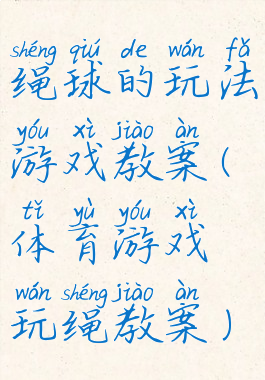 shéng qiú de wán fǎ
绳球的玩法
yóu xì jiào àn
游戏教案(
tǐ yù yóu xì
体育游戏
wán shéng jiào àn
玩绳教案)